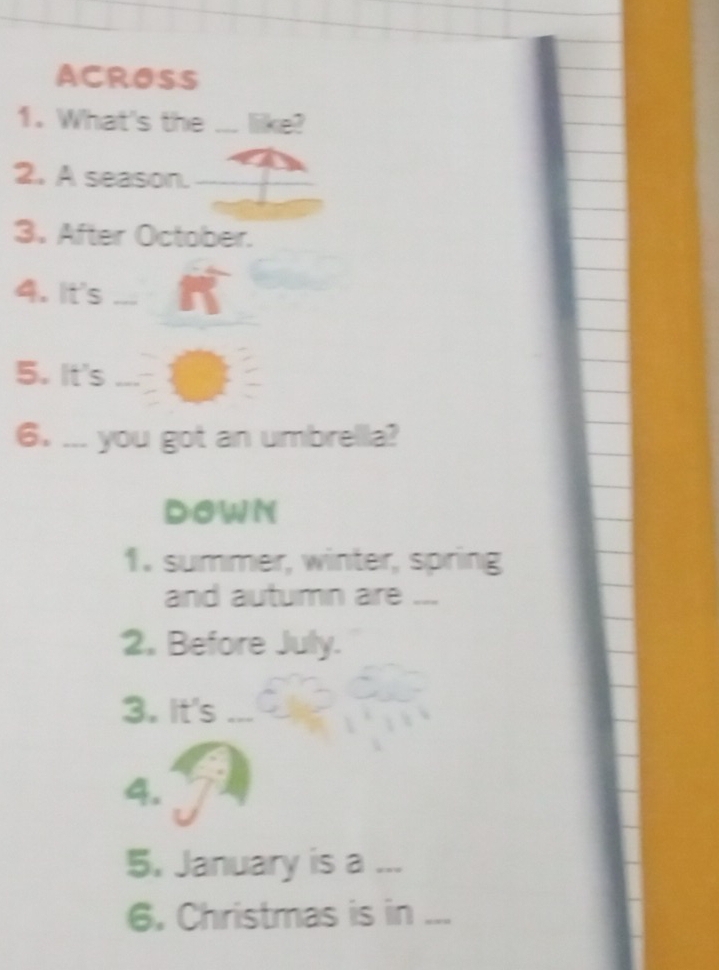 ACROSS
1. What's the ... like?
2. A season.
3. After October.
4. It's ...
5. It's ...
6. ... you got an umbrella?
DOWN
1. summer, winter, spring
and autumn are ...
2. Before July.
3. It's ...
4.
5. January is a ...
6. Christmas is in ...